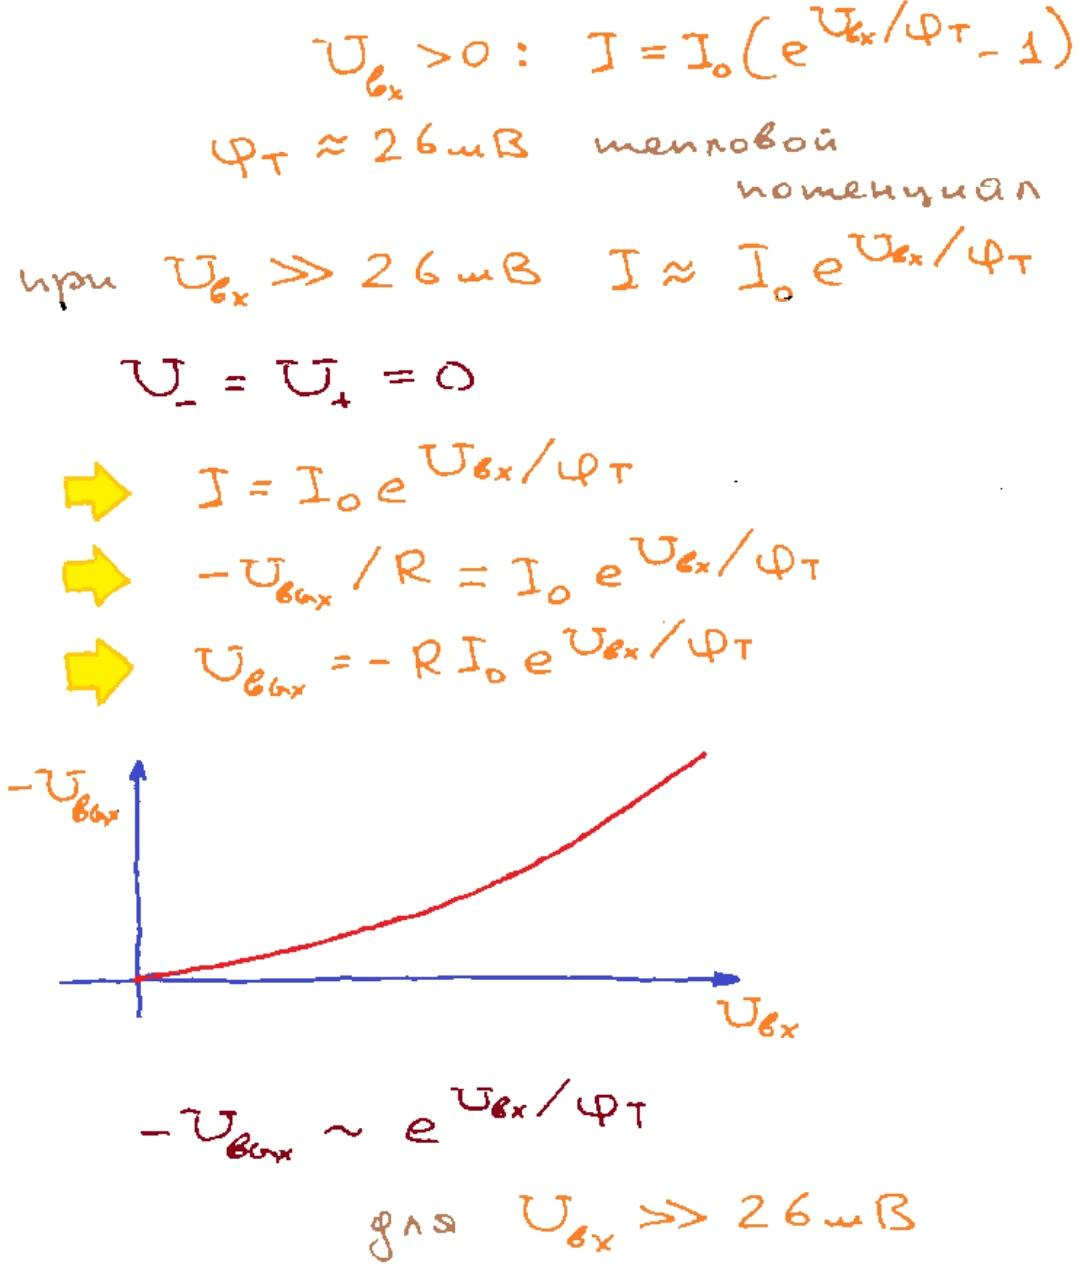 U_вх > 0 : I = I_0 (e^{U_вх/φ_T} - 1)
φ_T ≈ 26 мВ тепловой
потенциал
при U_вх ≫ 26 мВ I ≈ I_0 e^{U_вх/φ_T}
U_- = U_+ = 0
I = I_0 e^{U_вх/φ_T}
-U_вых / R = I_0 e^{U_вх/φ_T}
U_вых = - R I_0 e^{U_вх/φ_T}
-U_вых
U_вх
-U_вых ~ e^{U_вх/φ_T}
для U_вх ≫ 26 мВ